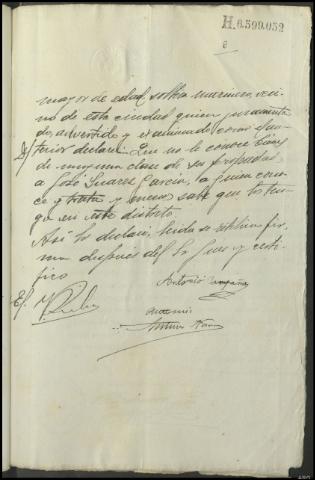 H.6.599.052
mayor de edad, soltero marinero, veci-
no de esta ciudad quien juramenta-
do, advertido y examinado como el an-
terior declara: Que no le conoce bienes
de ninguna clase de su propiedad,
a José Suarez Garcia, a quien cono-
ce y trata y menos sabe que los ten-
ga en este distrito.
Así lo declara, leida se ratifica fir-
ma despues del Sr Juez y certi-
fico
Antonio
Ante mi
Arturo